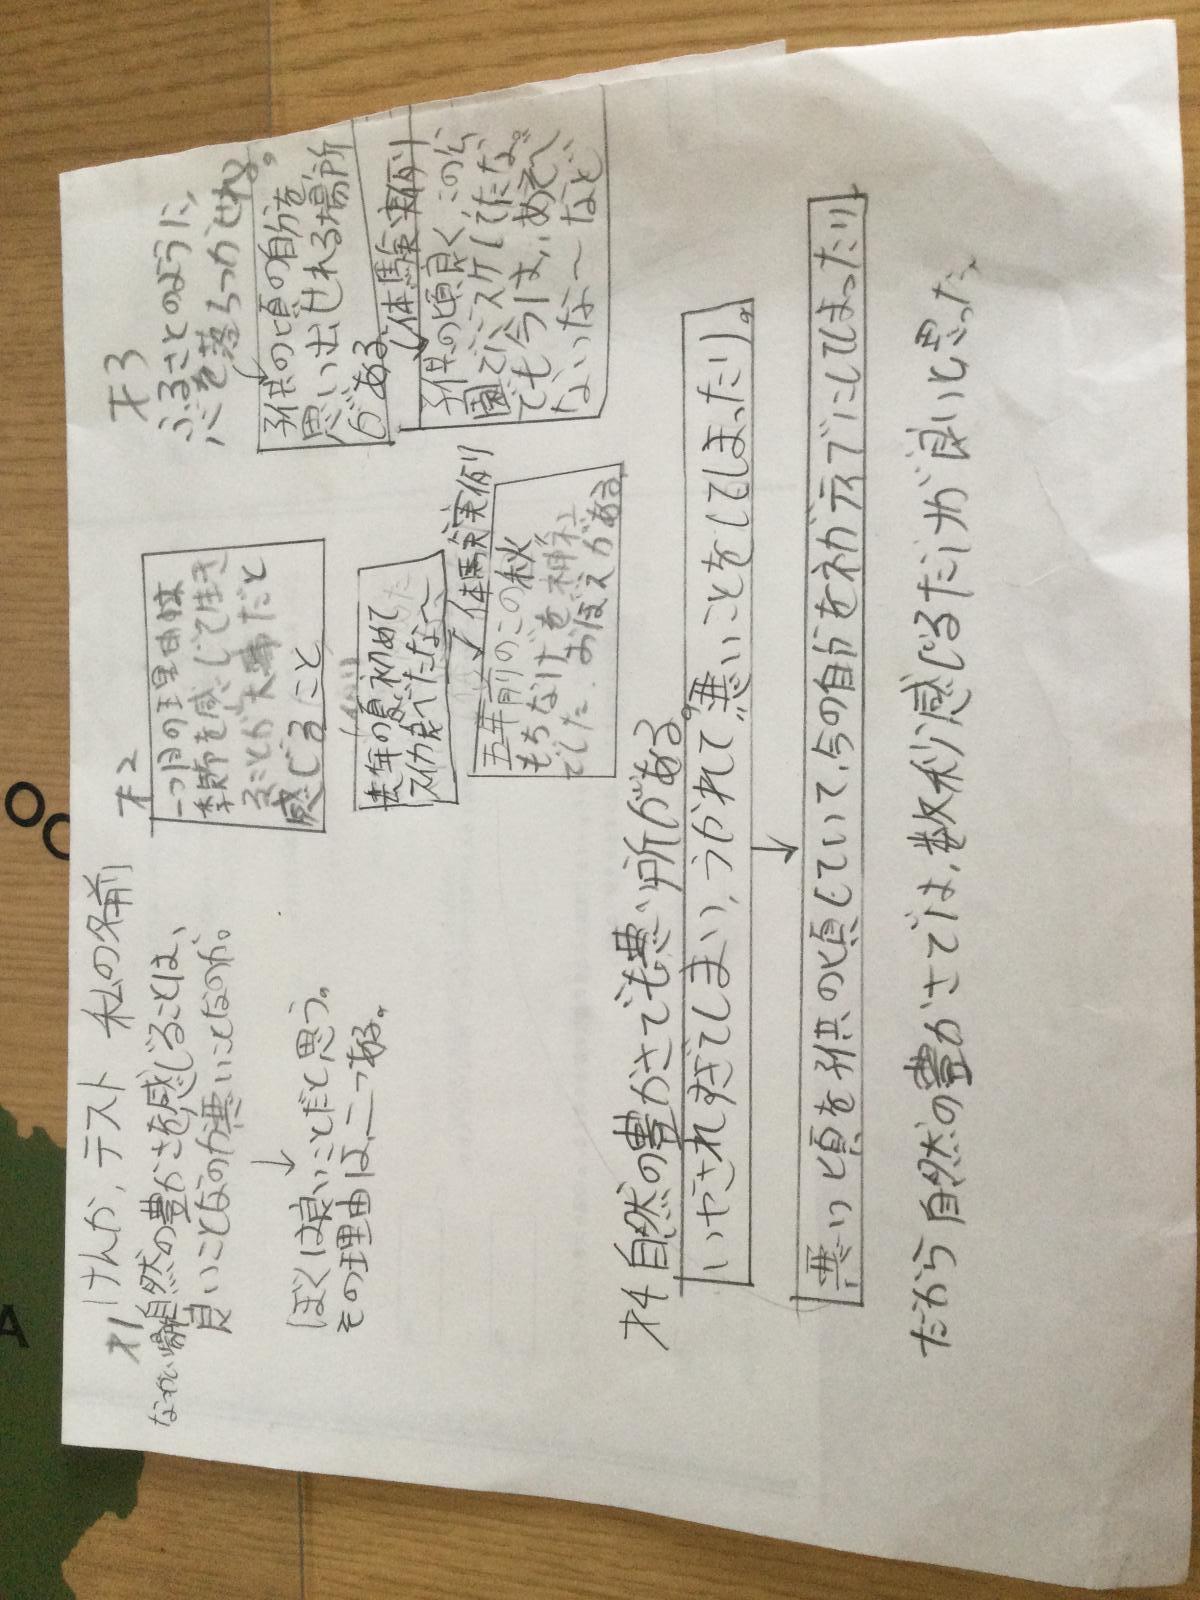 才1 けんか、テスト 私の名前
自然の豊かさを感じることは、
良いことなのか悪いことなのか。
↓
ぼくは良いことだと思う。
その理由は、二つある。
才2
一つ目の理由は
季節を感じて生き
ることが大事だと
感じること
去年の夏、初めて
スイカ食べたな〜
↙体験実例
五年前のこの秋
もちなげを神社
でした、おぼえがある。
才3
ふるさとのように、
心を落ちつかせれる。
子供の頃の自分を、
思い出せれる場所
がある。
↙体験実例
子供の頃良く、この公
園でバスケしてたな。
でも今は、
ないな〜など
才4 自然の豊かさでも悪い所がある。
いやされすぎてしまい、うかれて、悪いことをしてしまったり。
↓
悪い頃を子供の頃していて、今の自分を初が元でにしてしまったり
だから自然の豊かさでは、数秒感じるだけが良いと思った。
OC
A